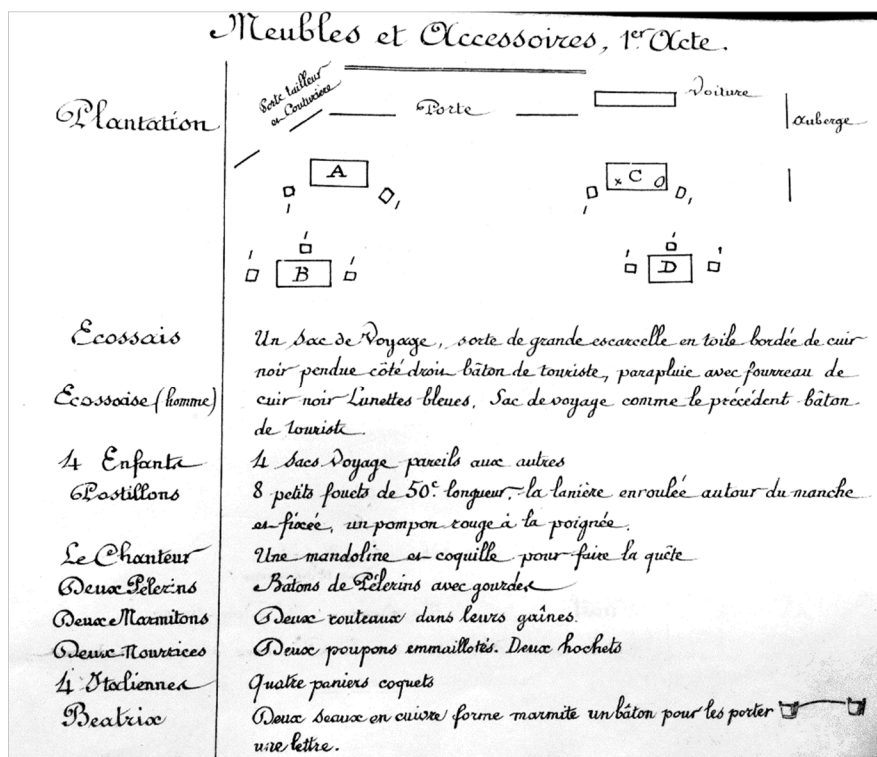 Meubles et Accessoires, 1er Acte.
Plantation
Porte tailleur
et Couturière
Porte
Voiture
Auberge
A
x C
B
D
Ecossais
Un Sac de Voyage, sorte de grande escarcelle en toile bordée de cuir
noir pendue côté droit bâton de touriste, parapluie avec fourreau de
Ecossaise (homme)
cuir noir Lunettes bleues, Sac de voyage comme le précédent bâton
de touriste.
4 Enfants
4 Sacs Voyage pareils aux autres
Postillons
8 petits fouets de 50c. longueur, la lanière enroulée autour du manche
et fixée, un pompon rouge à la poignée.
Le Chanteur
Une mandoline et coquille pour faire la quête
Deux Pélerins
Bâtons de Pélerins avec gourdes
Deux Marmitons
Deux couteaux dans leurs gaînes.
Deux Nourrices
Deux poupons emmaillotés. Deux hochets
4 Italiennes
Quatre paniers coquets
Beatrix
Deux seaux en cuivre forme marmite un bâton pour les porter
une lettre.